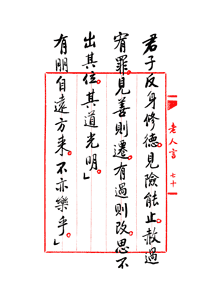 老人言
七十
君子反身修德。見險能止。赦過
宥罪。見善則遷。有過則改。思不
出其位。其道光明。」
有朋自遠方來。不亦樂乎。」